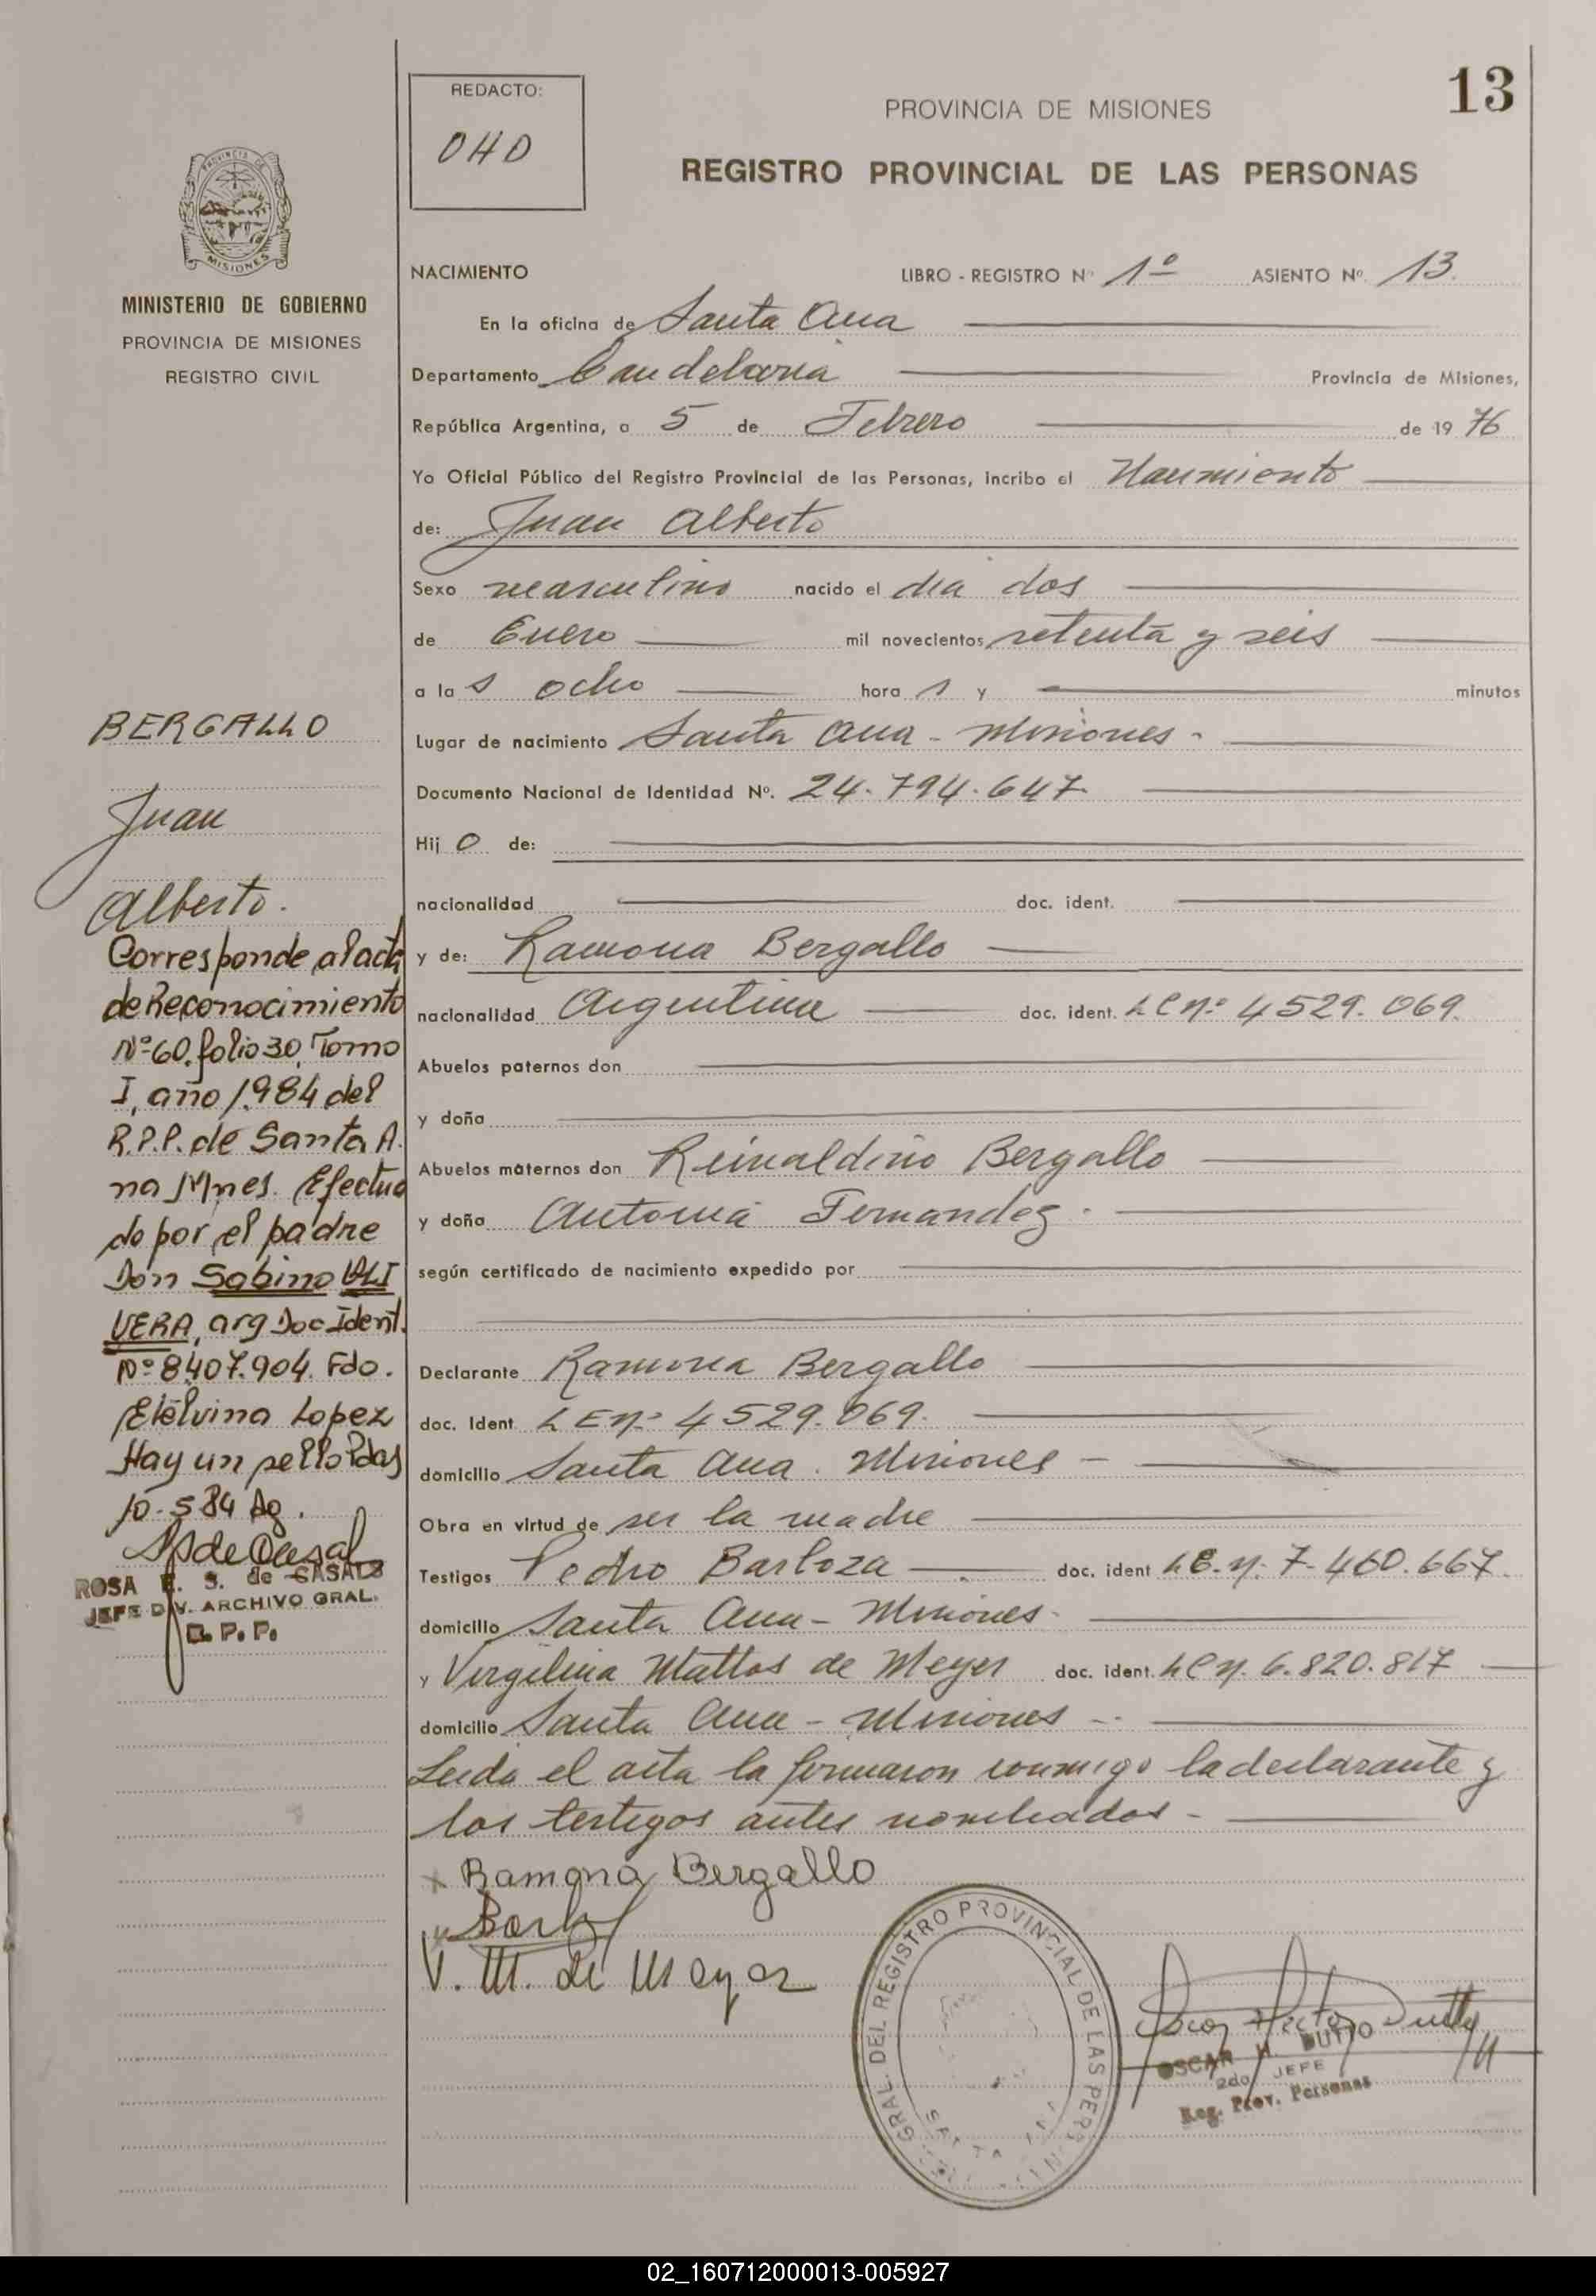 13
REDACTO:
OHD
PROVINCIA DE MISIONES
REGISTRO PROVINCIAL DE LAS PERSONAS
PROVINCIA DE
MISIONES
MINISTERIO DE GOBIERNO
PROVINCIA DE MISIONES
REGISTRO CIVIL
NACIMIENTO LIBRO - REGISTRO Nº 1º ASIENTO Nº. 13.
En la oficina de Santa Ana
Departamento Candelaria Provincia de Misiones,
República Argentina, a 5 de Febrero de 19 76
Yo Oficial Público del Registro Provincial de las Personas, incribo el Nacimiento
de: Juan Alberto
Sexo masculino nacido el dia dos
de Enero mil novecientos setenta y seis
a la s ocho hora s y minutos
Lugar de nacimiento Santa Ana - Misiones -
Documento Nacional de Identidad Nº. 24.794.647
Hij o de:
nacionalidad doc. ident.
y de: Ramona Bergallo
nacionalidad Argentina doc. ident. LC nº 4529.069.
Abuelos paternos don
y doña
Abuelos maternos don Reinaldino Bergallo
y doña Antonia Fernandez.
según certificado de nacimiento expedido por
Declarante Ramona Bergallo
doc. Ident LE nº 4529.069.
domicilio Santa Ana. Misiones -
Obra en virtud de ser la madre
Testigos Pedro Barboza doc. ident LE. n. 7.460.667.
domicilio Santa Ana - Misiones-
y Virgilina Mattos de Meyer doc. ident. LC n. 6.820.817
domicilio Santa Ana - Misiones -.
Leida el acta la firmaron conmigo la declarante y
los testigos antes nombrados -
Ramona Bergallo
V. M. de Meyer
GRAL. DEL REGISTRO PROVINCIAL DE LAS PERS
SANTA ANA
Oscar Hector Dutto
OSCAR H. DUTTO
2do. JEFE
Reg. Prov. Personas
BERGALLO
Juan
Alberto.
Corresponde al acta
de Reconocimiento
Nº 60, folio 30, Tomo
I, año 1.984 del
R.P.P. de Santa A.
na Mnes. Efectua
do por el padre
Don Sabino OLI
VERA, arg Doc Ident.
Nº 8407.904. Fdo.
Etelvina Lopez
Hay un sello Pdas
10-5 84 Ag.
ROSA E. S. de CASALS
JEFE DIV. ARCHIVO GRAL.
R. P. P.
02_160712000013-005927